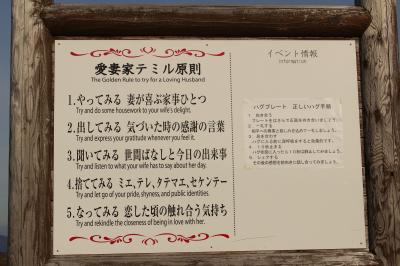 愛妻家テミル原則
The Golden Rule to try for a Loving Husband
1.やってみる 妻が喜ぶ家事ひとつ
Try and do some housework to your wife's delight.
2.出してみる 気づいた時の感謝の言葉
Try and express your gratitude whenever you feel it.
3.聞いてみる 世間ばなしと今日の出来事
Try and listen to what your wife has to say about her day.
4.捨ててみる ミエ、テレ、タテマエ、セケンテー
Try and let go of your pride, shyness, and public identities.
5.なってみる 恋した頃の触れ合う気持ち
Try and rekindle the closeness of being in love with her.
イベント情報
Information
ハグプレート 正しいハグ手順
1. 向き合う
2. 一礼する
3. 抱き合わす
4. ハグ静止する
5. シェクする